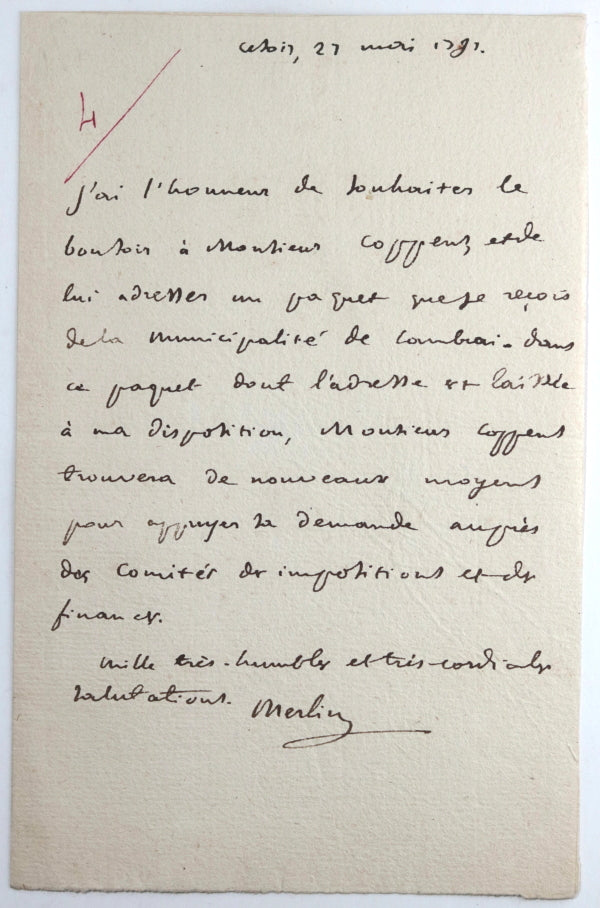 ce soir, 27 mai 1791.
4
J'ai l'honneur de souhaiter le
bonsoir à Monsieur Coppens, et de
lui adresser un paquet que je reçois
de la municipalité de Cambrai. dans
ce paquet dont l'adresse est laissée
à ma disposition, Monsieur Coppens
trouvera de nouveaux moyens
pour appuyer sa demande auprès
des Comités des impositions et des
finances.
mille très-humbles et très-cordiales
salutations. Merlin